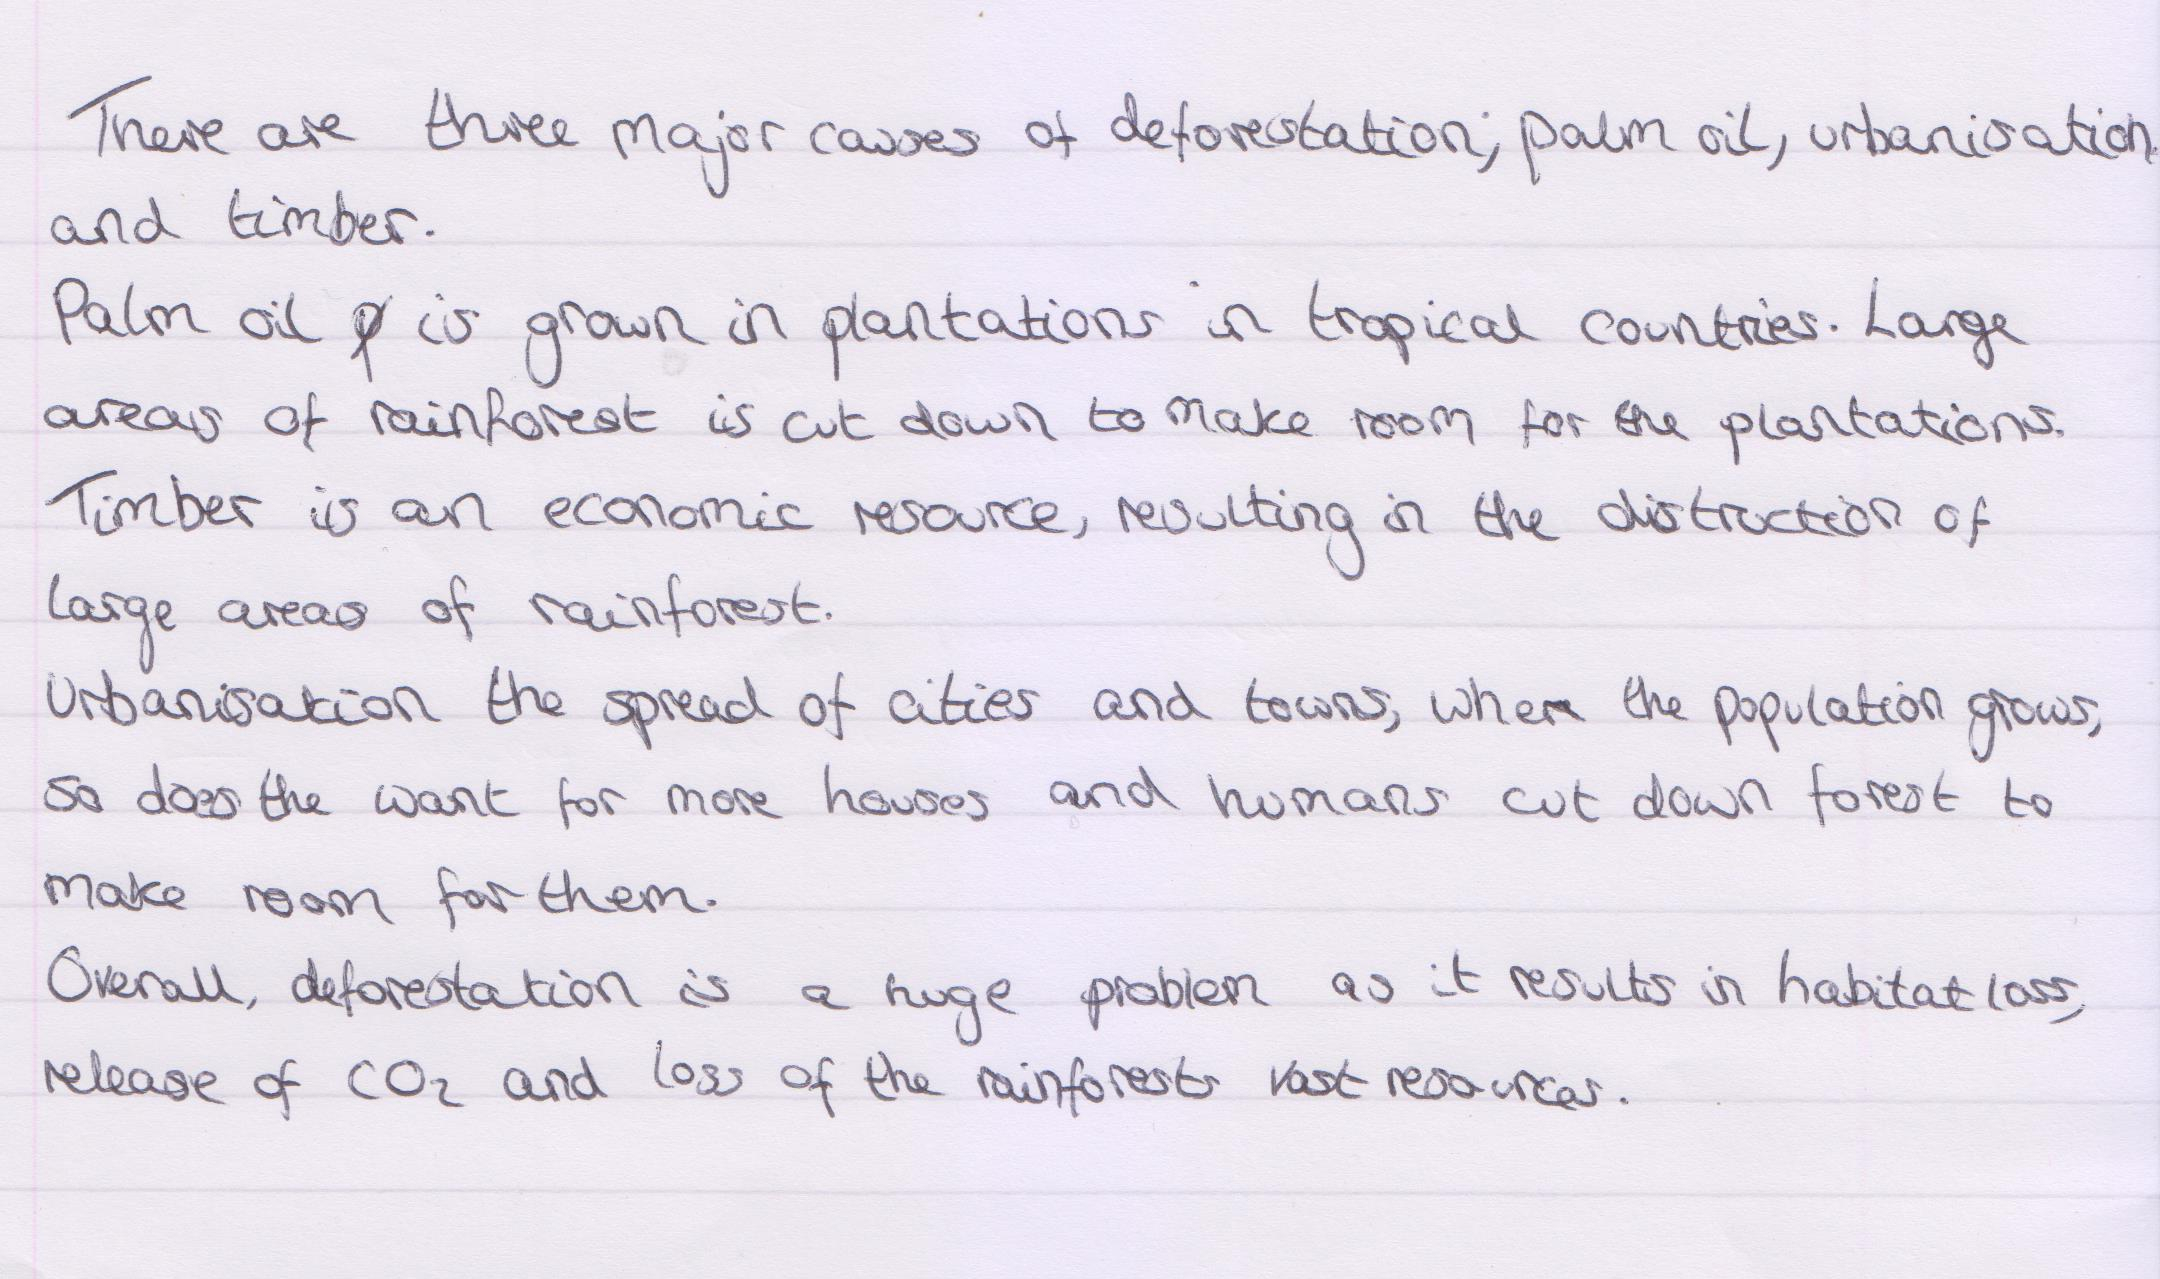 There are three major causes of deforestation; palm oil, urbanisation
and timber.
Palm oil is grown in plantations in tropical countries. Large
areas of rainforest is cut down to make room for the plantations.
Timber is an economic resource, resulting in the distruction of
large areas of rainforest.
Urbanisation the spread of cities and towns, where the population grows,
so does the want for more houses and humans cut down forest to
make room for them.
Overall, deforestation is a huge problem as it results in habitat loss,
release of CO₂ and loss of the rainforests vast resources.